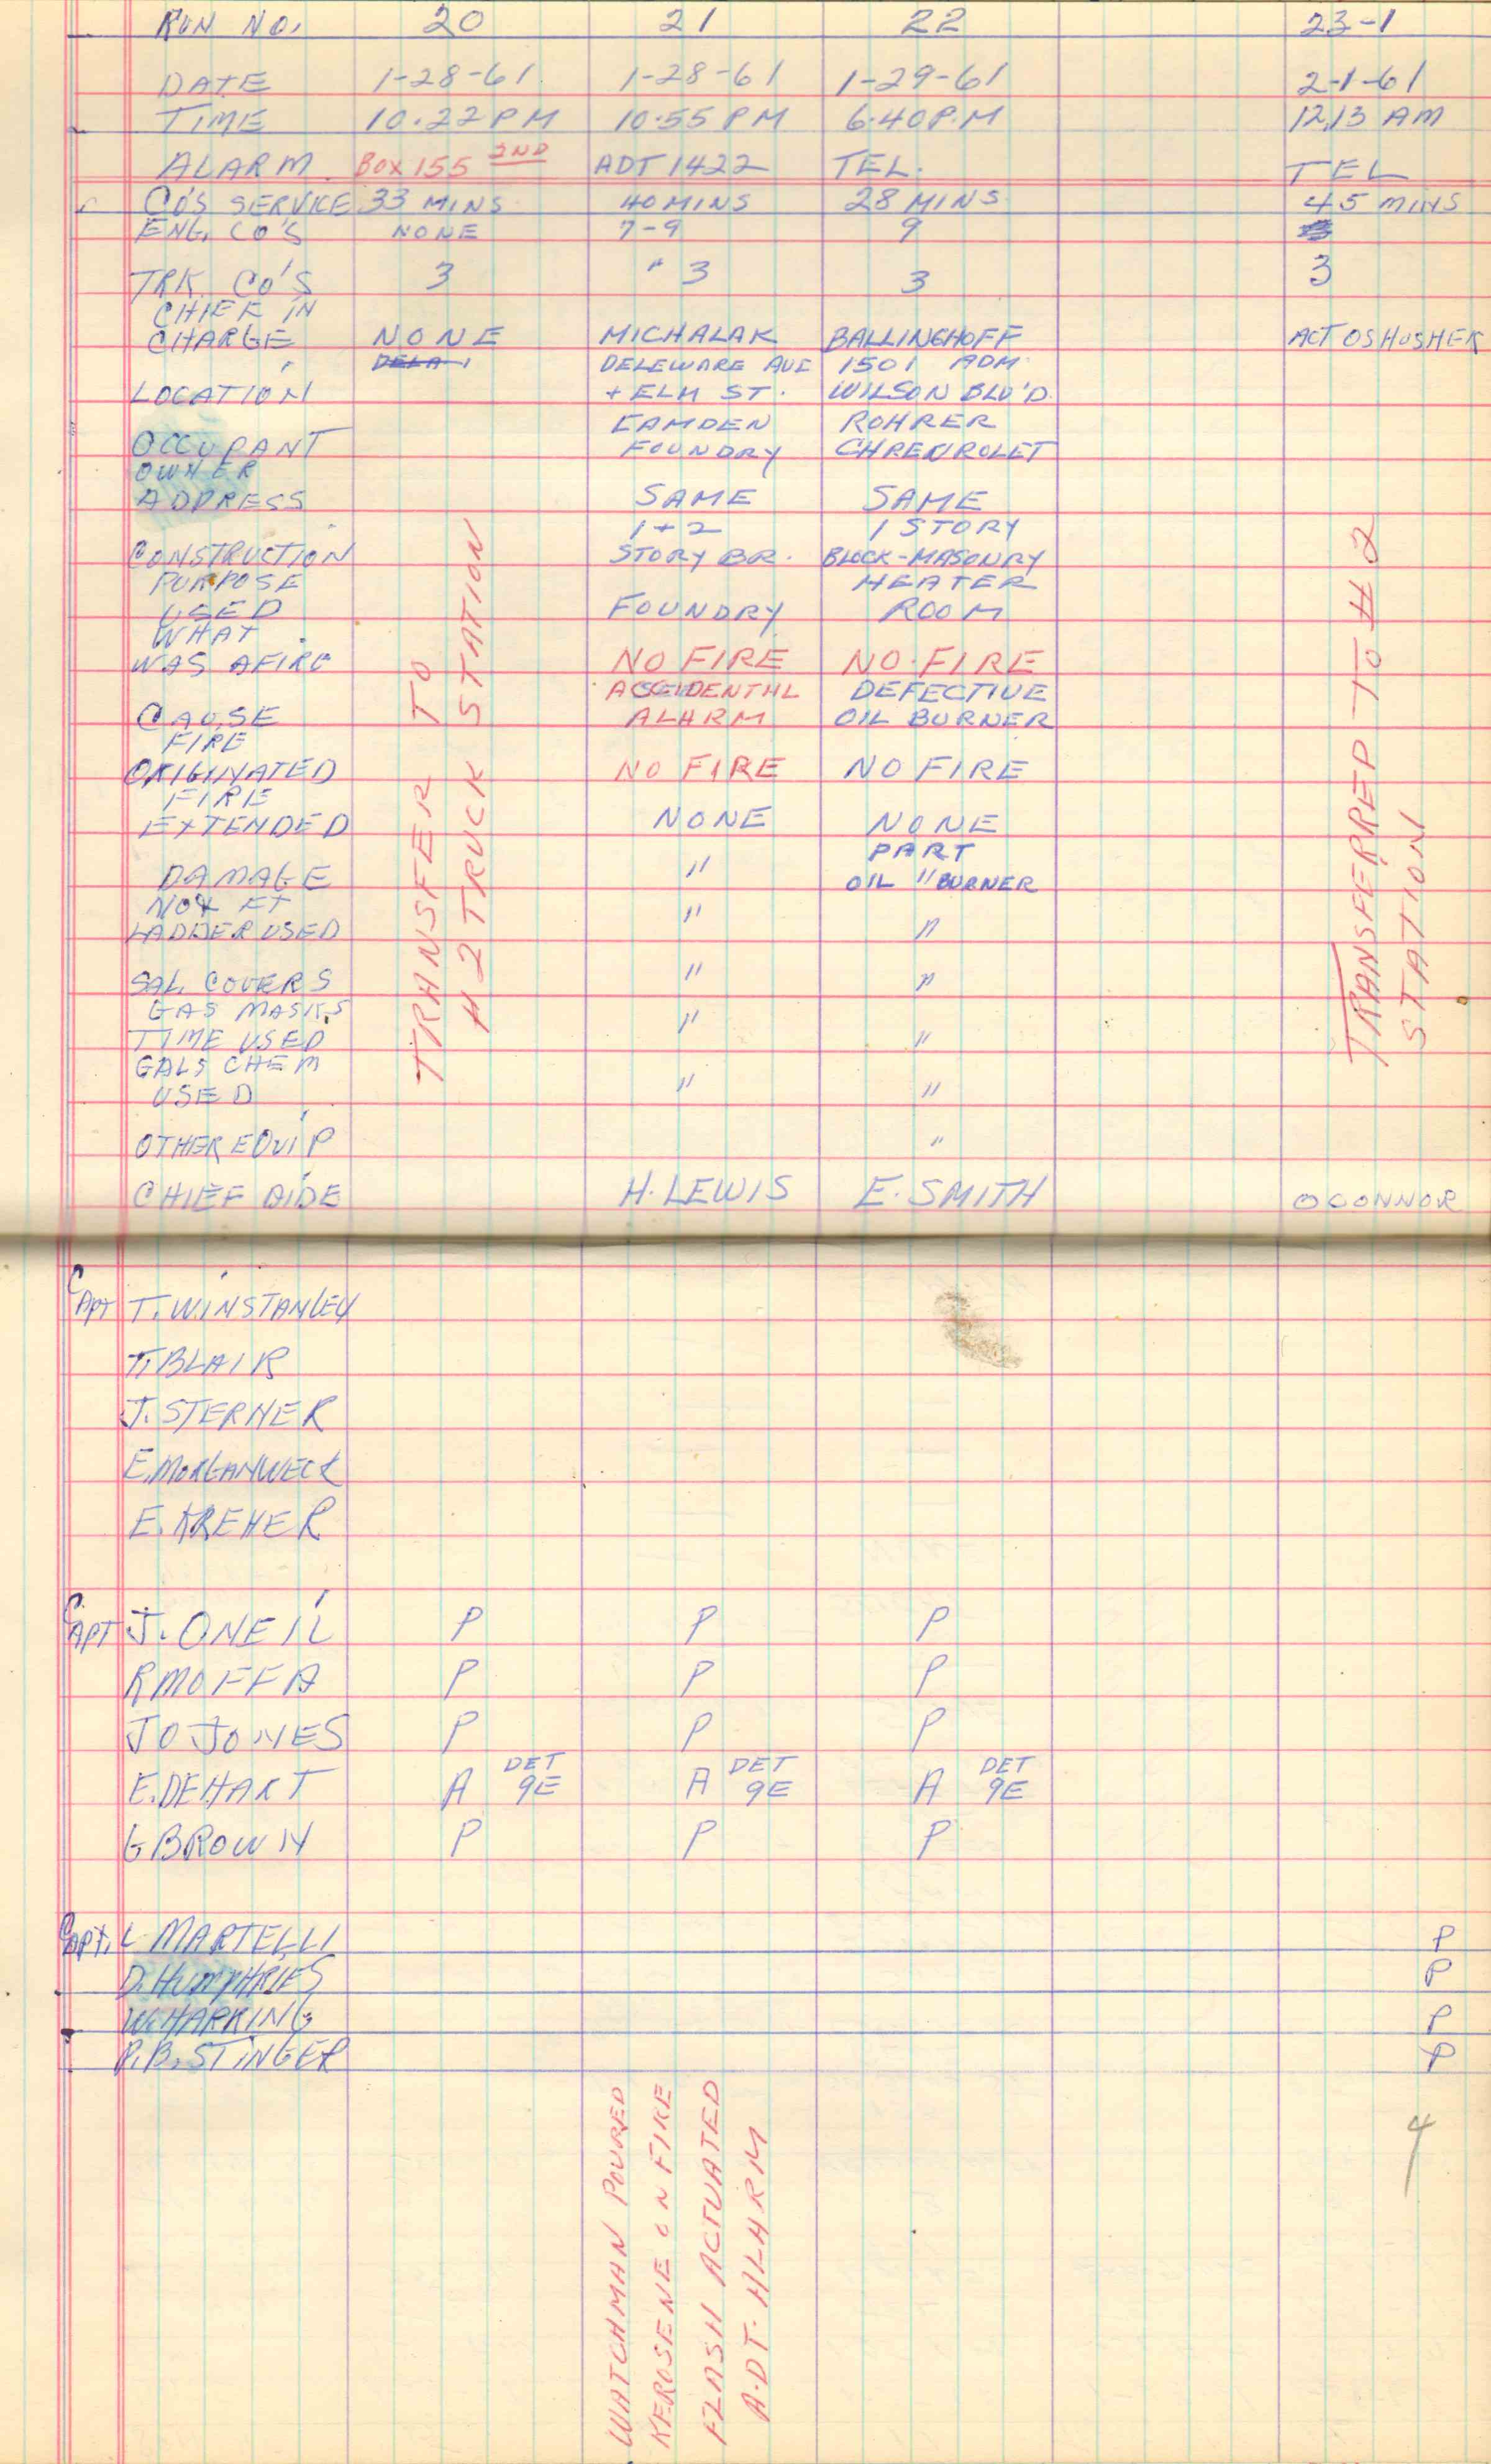 RUN NO. 20 21 22 23-1
DATE 1-28-61. 1-28-61 1-29-61 2-1-61
TIME 10.22 PM 10.55 PM 6.40 P.M 12,13 AM
ALARM. BOX 155 2ND ADT 1422 TEL. TEL
CO'S SERVICE 33 MINS 40 MINS 28 MINS. 45 MINS
ENG. CO'S NONE 7-9 9
TRK. CO'S 3 3 3 3
CHIEF IN
CHARGE NONE MICHALAK BALLINGHOFF ACT OSHUSHER
DELA DELEWARE AVE 1501 ADM.
LOCATION + ELM ST. WILSON BLV'D.
CAMDEN ROHRER
OCCUPANT FOUNDRY CHREVROLET
OWNER
ADDRESS SAME SAME
1+2 1 STORY
CONSTRUCTION STORY BR. BLOCK-MASONRY
PURPOSE HEATER
USED FOUNDRY ROOM
WHAT
WAS AFIRE NO FIRE NO.FIRE
ACCIDENTAL DEFECTIVE
CAUSE ALARM OIL BURNER
FIRE
ORIGINATED NO FIRE NO FIRE
FIRE
EXTENDED NONE NONE
PART
DAMAGE " OIL " BURNER
NO & FT "
LADDER USED "
SAL. COVERS " "
GAS MASKS "
TIME USED "
GALS CHEM
USED " "
OTHER EQUIP "
CHIEF AIDE H. LEWIS E. SMITH OCONNOR
TRANSFER TO
#2 TRUCK STATION
TRANSFERRED TO #2
STATION
CAPT T. WINSTANLEY
T. BLAIR
J. STERNER
E. MORGANWECK
E. KREHER
CAPT J. ONEIL P P P
R MOFFA P P P
JO JONES P P P
DET DET DET
E. DEHART A 9E A 9E A 9E
G BROWN P P P
CAPT. L MARTELLI P
D. HUMPHRIES P
W. HARKING P
R.B. STINGER P
4
WATCHMAN POURED
KEROSENE ON FIRE
FLASH ACTUATED
A.D.T. ALARM